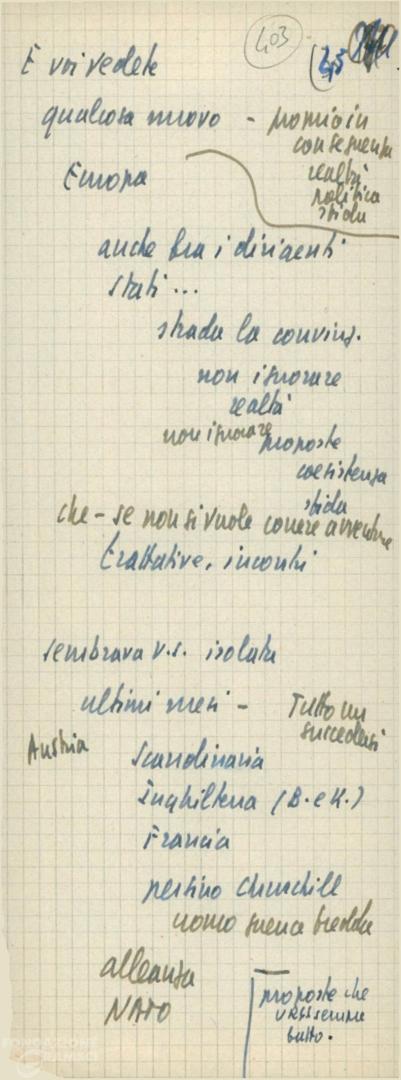 403
45
E voi vedete
qualcosa nuovo -
proprio in
conseguenza
realtà
politica
sfida
Europa
anche tra i dirigenti
stati ...
strada la convinz.
non ignorare
realtà
non ignorare proposte
coesistenza
sfida
che - se non si vuole correre avventure
trattative, incontri
sembrava U.S. isolata
ultimi mesi -
Tutto un
succedersi
Austria
Scandinavia
Inghilterra (B. e K.)
Francia
persino Churchill
uomo guerra fredda
alleanza
NATO
proposte che
URSS sempre
fatto.
FONDAZIONE
GRAMSCI